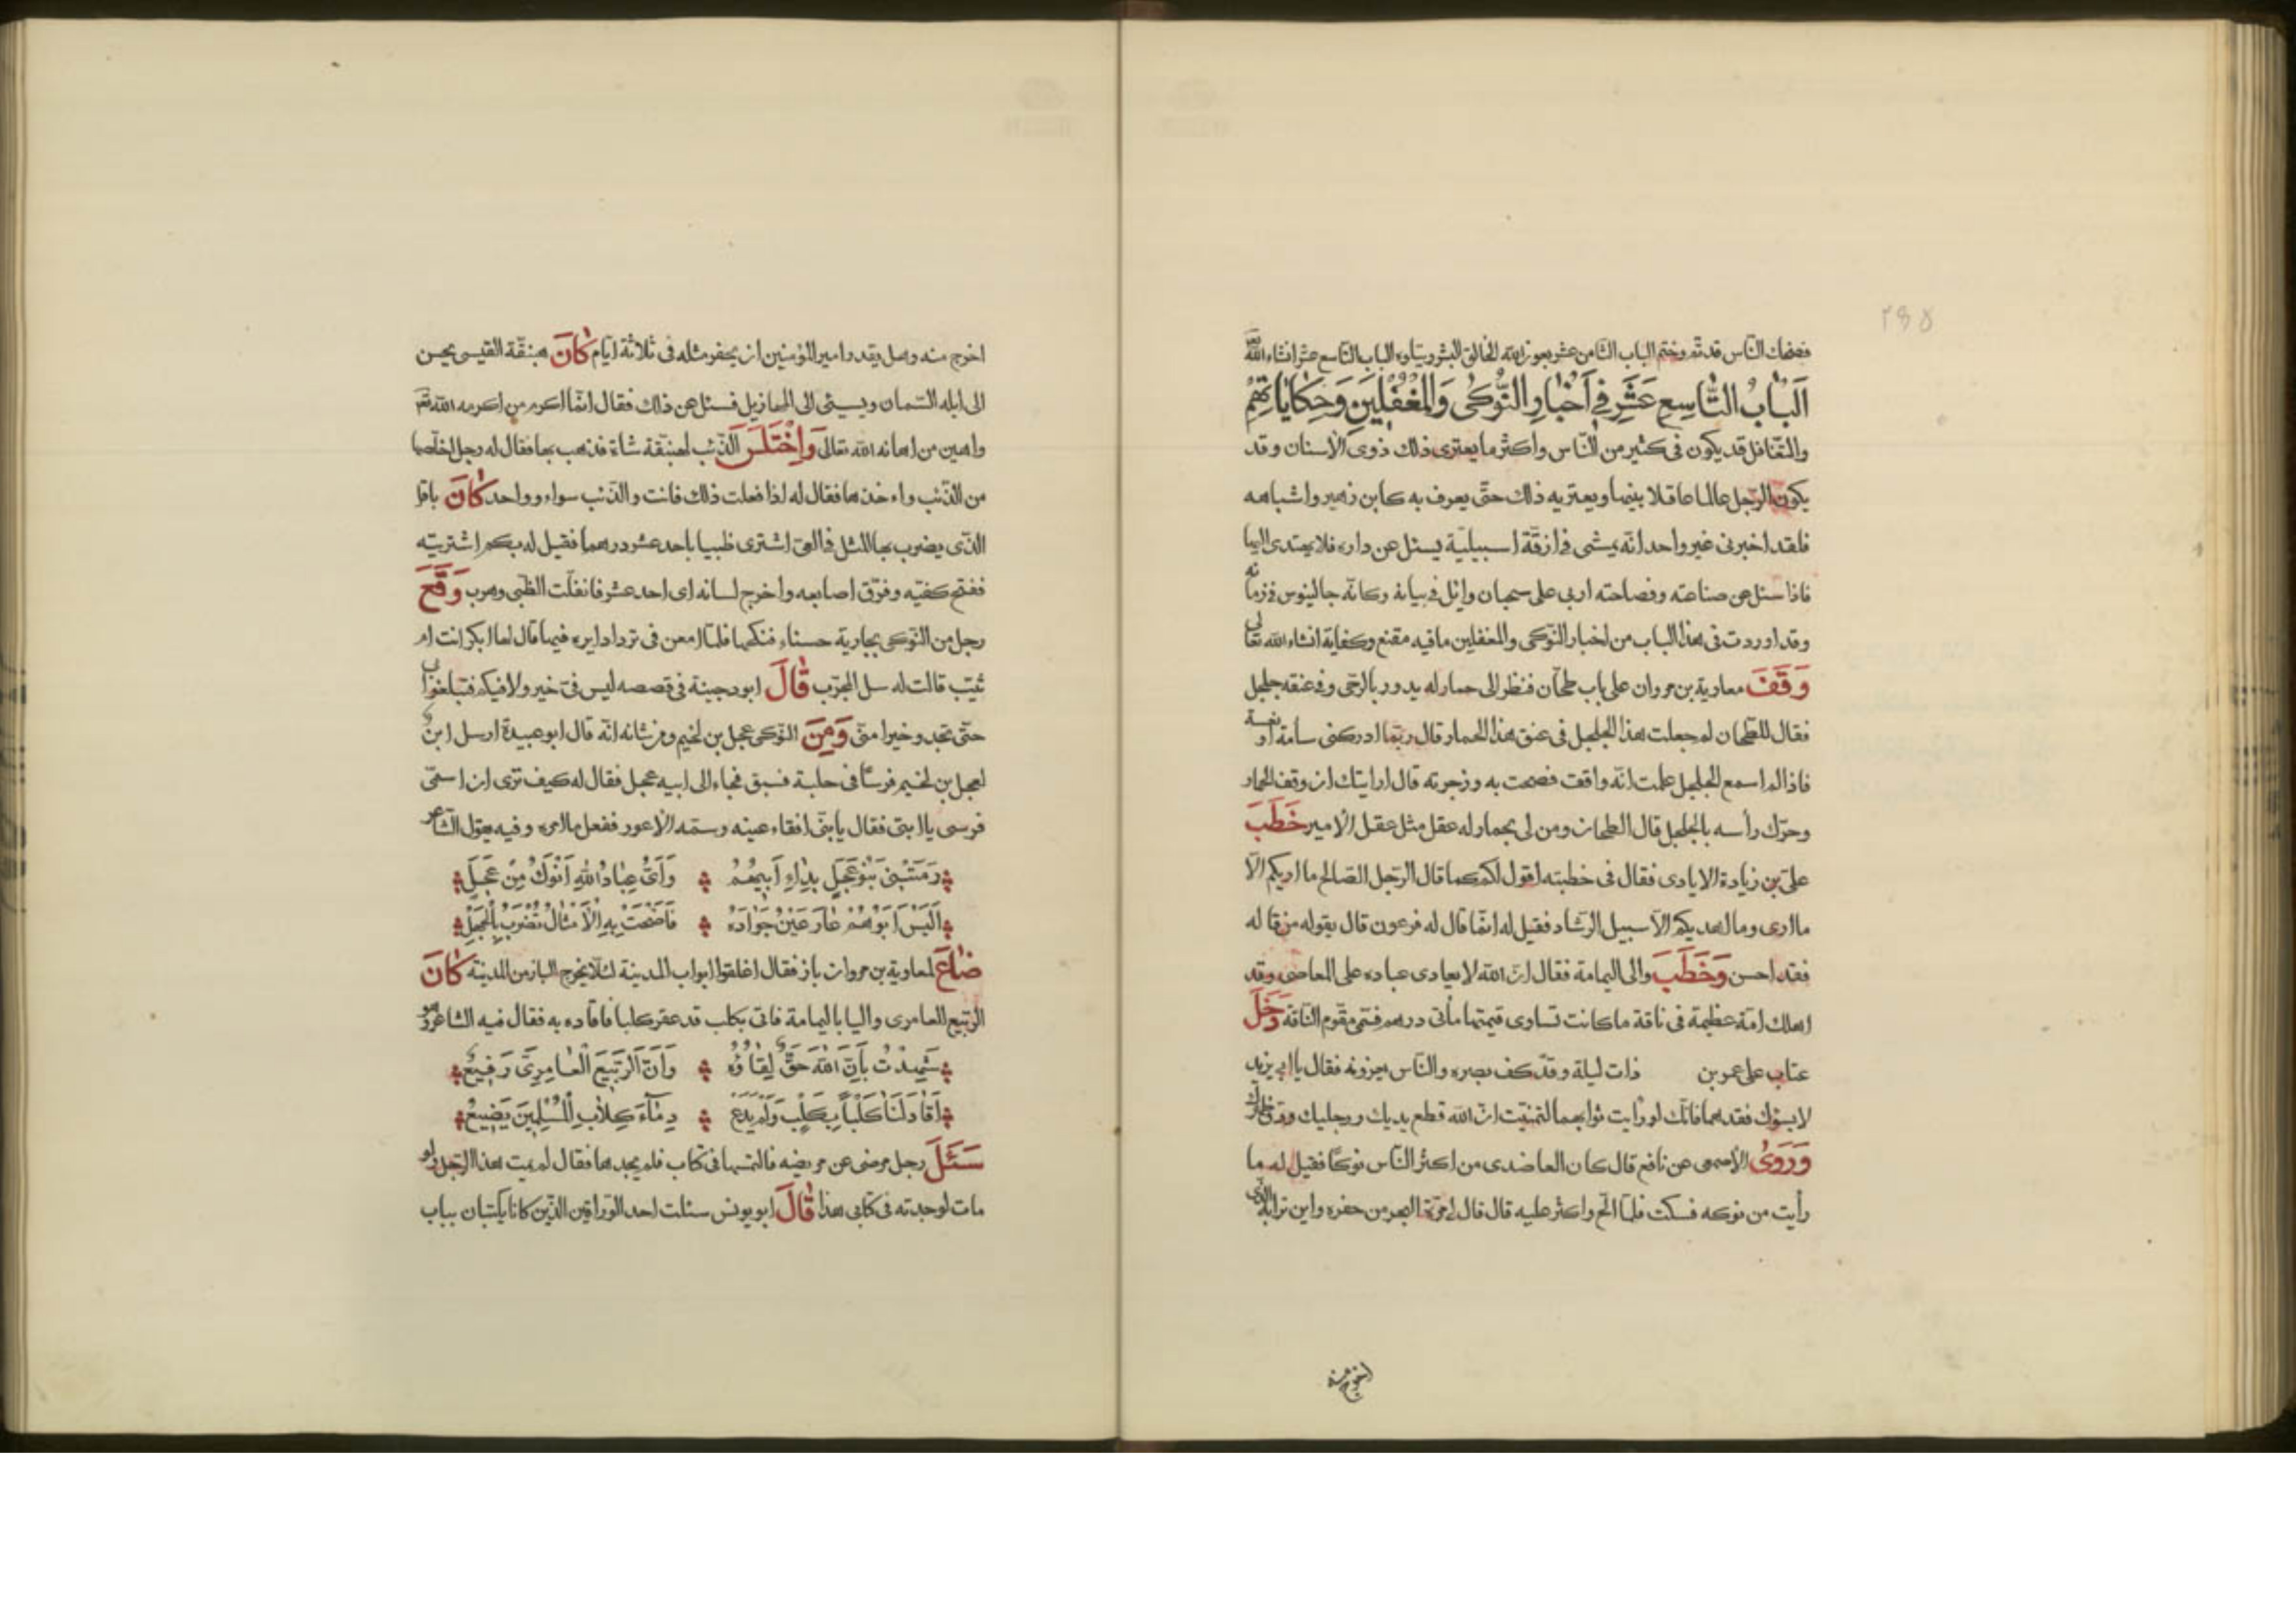 ٢٩٥
فضحك النّاس قد تمّ وختم الباب الثّامن عشر بعون الله الخالق البشر ويتلوه الباب التّاسع عشر انشاء الله تعه
اَلْبَابُ التَّاسِعِ عَشَرَ فِي اَخْبَارِ النَّوْكٰى وَالْمُغَفَّلِينَ وَحِكَايَاتِهِمْ
والتّغافل قد يكون فى كثير من النّاس واكثر ما يعترى ذلك ذوى الاسنان وقد
يكون الرّجل عالما عاقلا بينما ويعتريه ذلك حتّى يعرف به كابن زهير واشباهه
فلقد اخبرنى غير واحد انّه يمشى فى ازقّة اسبيليّة يسئل عن داره فلا يهتدى اليها
فاذا سئل عن صناعته وفصاحته اربى على سحبان وائل فى بيانه وكانّه جالينوس فى زمانه
وقد اوردت فى هذا الباب من اخبار النّوكى والمغفلين ما فيه مقنع وكفاية انشاء الله تعالى
وَقَفَ معاوية بن مروان على باب طحّان فنظر الى حمار له يدور بالرّحى وفى عنقه جلجل
فقال للطّحان لم جعلت هذا الجلجل فى عنق هذا الحمار قال ربّما ادركنى سأمة او نعسة
فاذا لم اسمع الجلجل علمت انّه واقف فصحت به وزجرته قال ارايتك ان وقف الحمار
وحرّك رأسه بالجلجل قال الطحان ومن لى بحمار له عقل مثل عقل الامير خَطَبَ
علىّ بن زيادة الايادى فقال فى خطبته اقول لكم كما قال الرّجل الصّالح ما اريكم الّا
ما ارى وما اهديكم الّا سبيل الرّشاد فقيل له انّما قال له فرعون قال بقوله من قاله
فقد احسن وَخَطَبَ والى اليمامة فقال انّ الله لا يعادى عباده على المعاصى وقد
اهلك امّة عظيمة فى ناقة ما كانت تساوى قيمتها مأتى درهم فسمّى مقوّم النّاقة دَخَلَ
عتاب على عمر بن ذات ليلة وقد كف بصره والنّاس يعزونه فقال يا ابى يزيد
لا يسؤك فقدهما فانّك لو رأيت ثوابهما لتمنّيت انّ الله قطع يديك ورجليك
وَرَوىٰ الاصمعى عن نافع قال كان العاضدى من اكثر النّاس نوكًا فقيل له ما
رأيت من نوكه فسكت فلمّا الحّ واكثر عليه قال قال لى مرّة البحر من حفره واين ترابه الّذى
اخرج منه
اخرج منه وهل يقدر امير المؤمنين ان يحفر مثله فى ثلاثة ايّام كٰانَ هبنقّة القيسى يحسن
الى ابله السّمان ويسئى الى المهازيل فسئل عن ذلك فقال انّما اكرم من اكرمه الله تعه
واهين من اهانه الله تعالى وَاخْتَلَسَ الذّئب لهبنّقة شاة فذهب بها فقال له رجل اخلّصها
من الذّئب وءاخذها فقال له اذا فعلت ذلك فانت والذّئب سواء وواحد كٰانَ باقل
الّذى يضرب بها المثل فى العىّ اشترى ظبيا باحد عشر درهما فقيل له بكم اشتريته
ففتح كفّيه وفرّق اصابعه واخرج لسانه اى احد عشر فانفلّت الظّبى وهرب وَقَعَ
رجل من النّوكى بجارية حسناء فنكحها فلمّا امعن فى ترداد ايره فيها قال لها ابكر انت ام
ثيّب قالت له سل المجرّب قٰالَ ابو دجينة فى قصصه ليس فىّ خير ولا فيكم فتبلغوا بى
حتّى تجدوا خيرا منّى وَمِنَ النّوكى عجل بن لخيم ومن شانه انّه قال ابو عبيدة ارسل ابن
لعجل بن لخيم فرسًا فى حلبة فسبق فجاء الى ابيه عجل فقال له كيف ترى ان اسمّى
فرسى يا ابتى فقال يا بنىّ افقاء عينه وسمّه الاعور ففعل ما امره وفيه يقول الشّاعر
رَمَتْنِى بَنُو عَجِلٍ بِدَاءِ اَبِيهِمُ وَاَىُّ عِبَادُ اللهِ اَنْوَكُ مِنْ عَجَلِ
اَلَيْسَ اَبُوهُمْ عَارَ عَيْنُ جَوَادِهِ فَاَضْحَتْ بِهِ الْاَمْثَالُ تُضْرَبُ بِالْجَهْلِ
ضٰاعَ لمعاوية بن مروان باز فقال اغلقوا ابواب المدينة لئلّا يخرج الباز من المدينة كٰانَ
الرّبيع العامرى واليا باليمامة فاتى بكلب قد عقر كلبا فاقاده به فقال فيه الشاعر
شَهِدْتُ بِاَنَّ اللهَ حَقٌّ لِقَاؤُهُ وَاَنَّ الرَّبِيعَ الْعَامِرِىَّ رَقِيعُ
اَقَادَ لَنَا كَلْبًا بِكَلْبٍ وَلَمْ يَدَعْ دِمَآءَ كِلَابِ الْمُسْلِمِينَ يَضِيعُ
سَئَلَ رجل مرضى عن مريضه فالتمسها فى كتاب فلم يجدها فقال لم يمت هذا الرّجل ولو
مات لوجدته فى كتابى هذا قٰالَ ابو يونس سئلت احد الورّاقين الّذين كانا يكتبان بباب